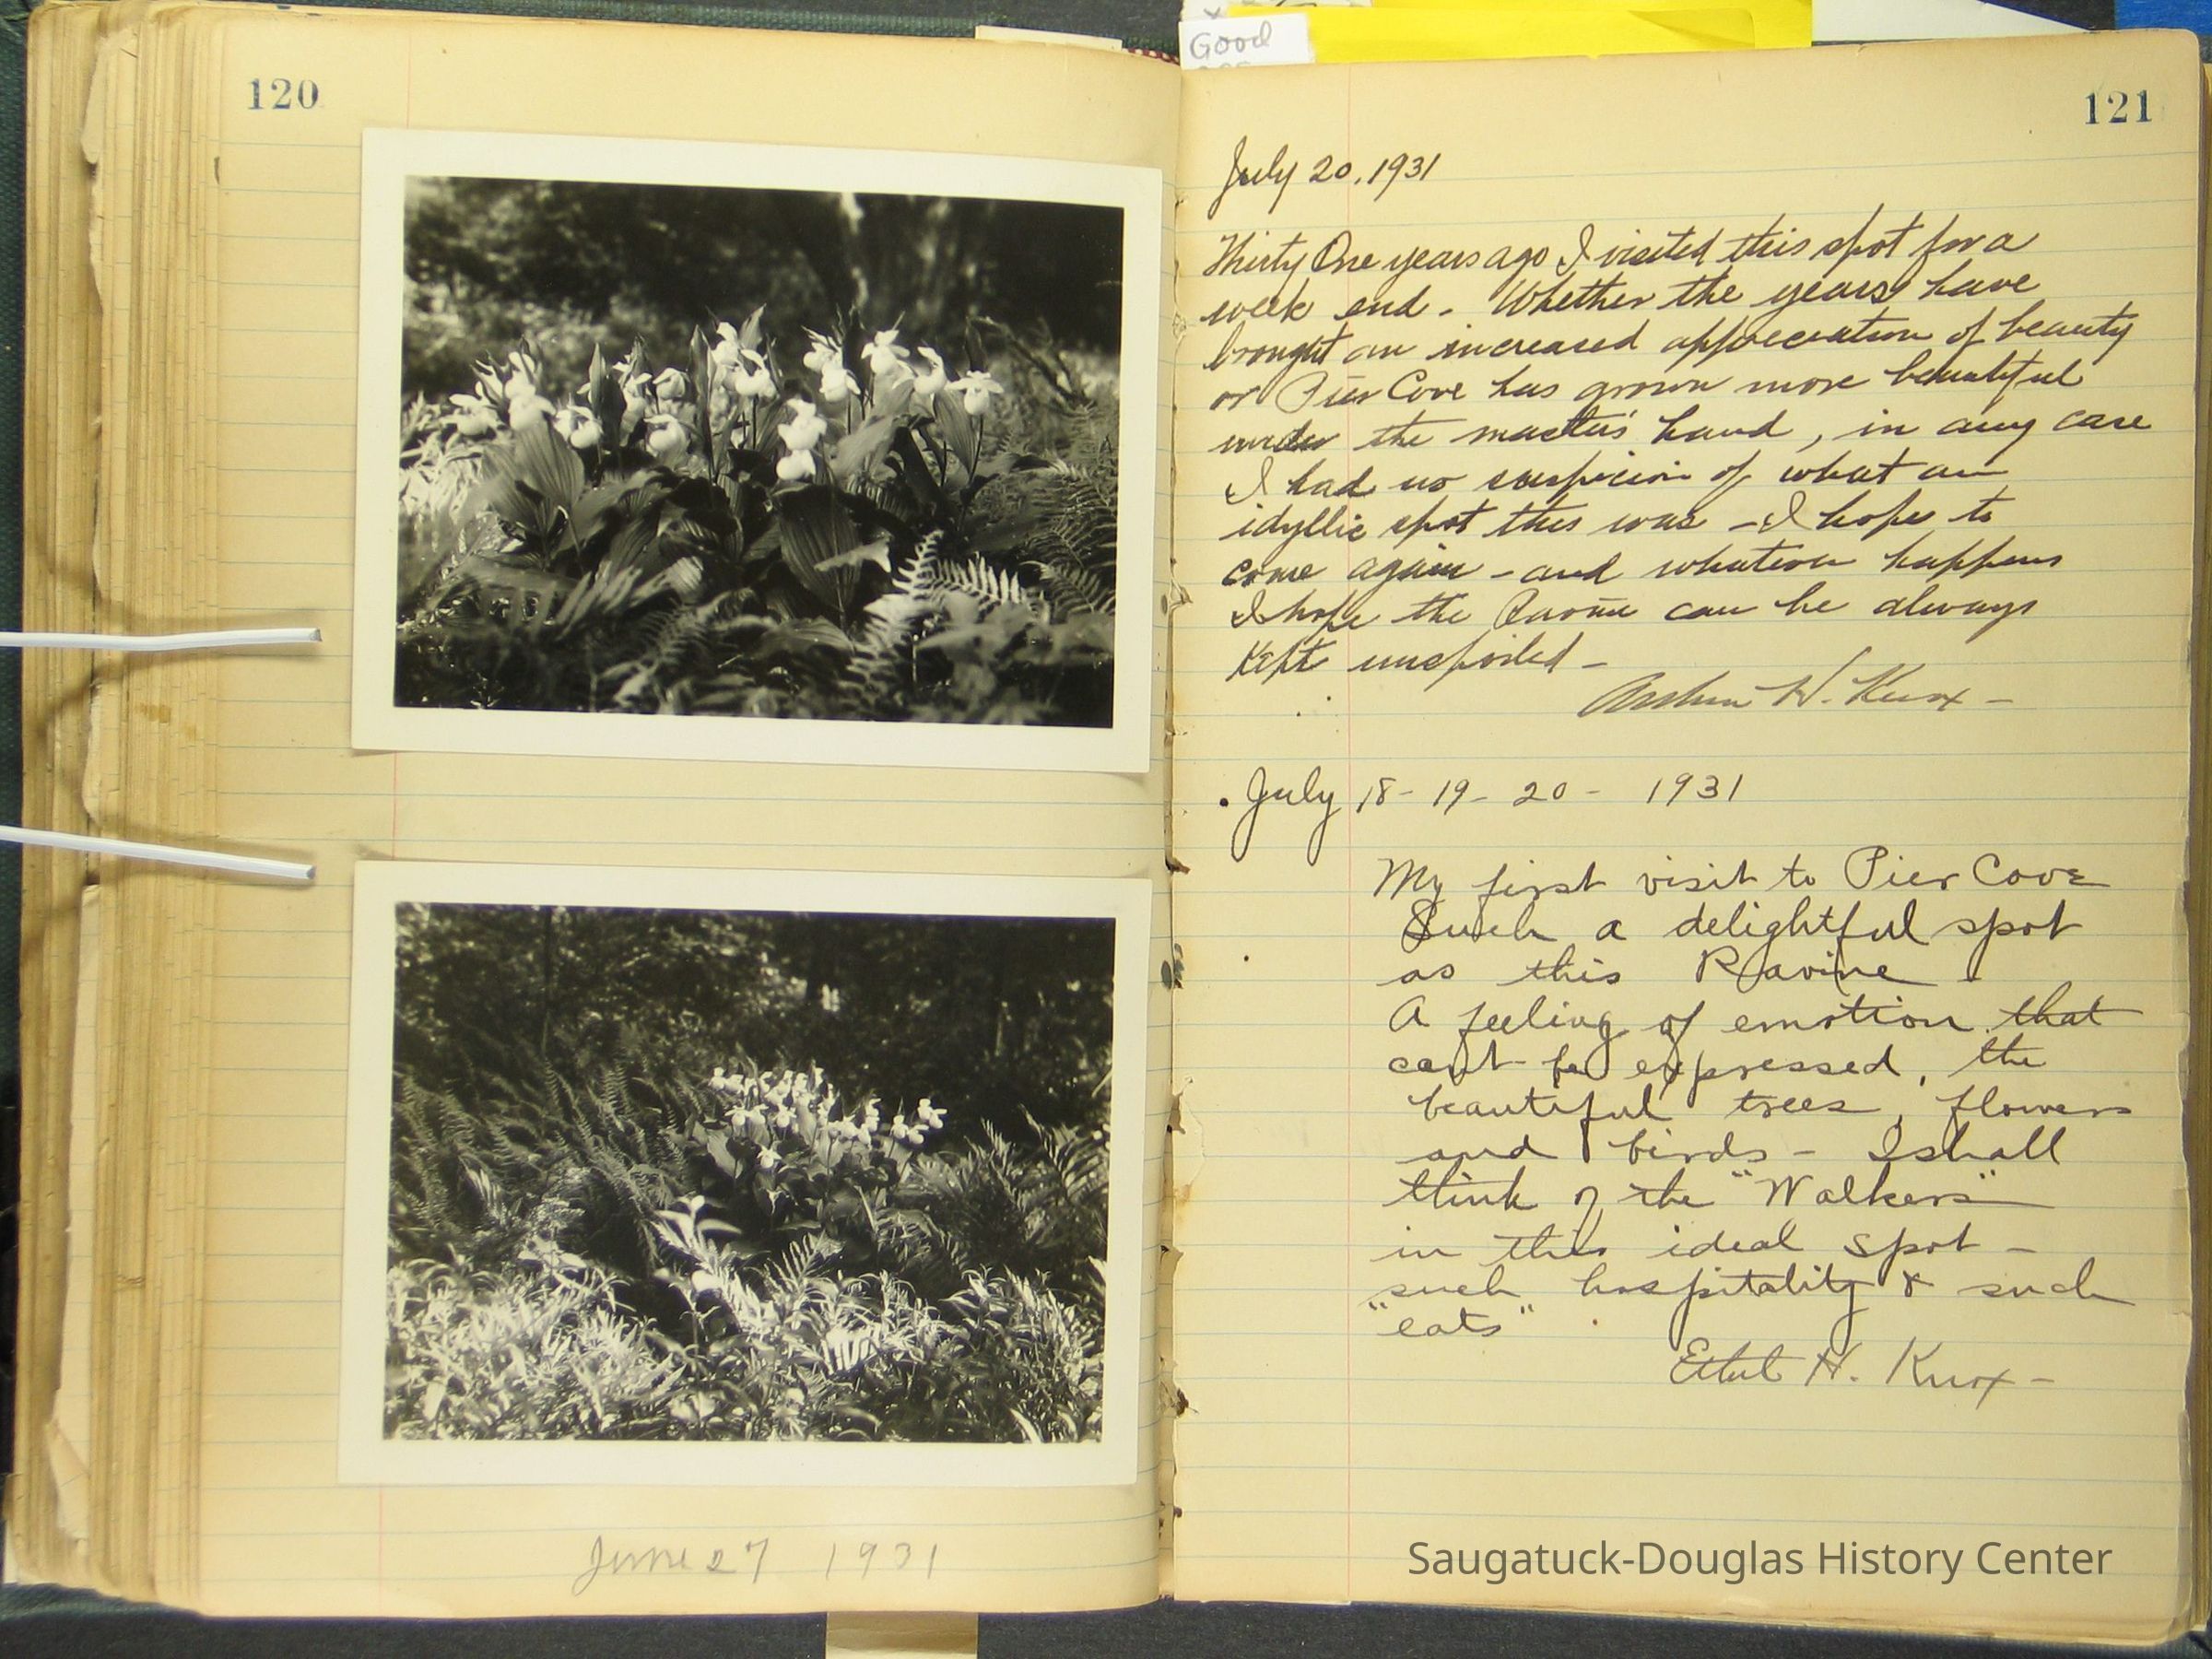 Good
120
June 27 1931
121
July 20, 1931
Thirty One years ago I visited this spot for a
week end - Whether the years have
brought an increased appreciation of beauty
or Pier Cove has grown more beautiful
under the master's hand, in any case
I had no suspicion of what an
idyllic spot this was - I hope to
come again - and whatever happens
I hope the Ravine can be always
kept unspoiled -
Arthur W. Knox -
July 18 - 19 - 20 - 1931
My first visit to Pier Cove
Such a delightful spot
as this Ravine -
A feeling of emotion that
can't be expressed, the
beautiful trees, flowers
and birds - I shall
think of the "Walkers"
in this ideal spot -
such hospitality & such
"eats"
Ethel H. Knox -
Saugatuck-Douglas History Center